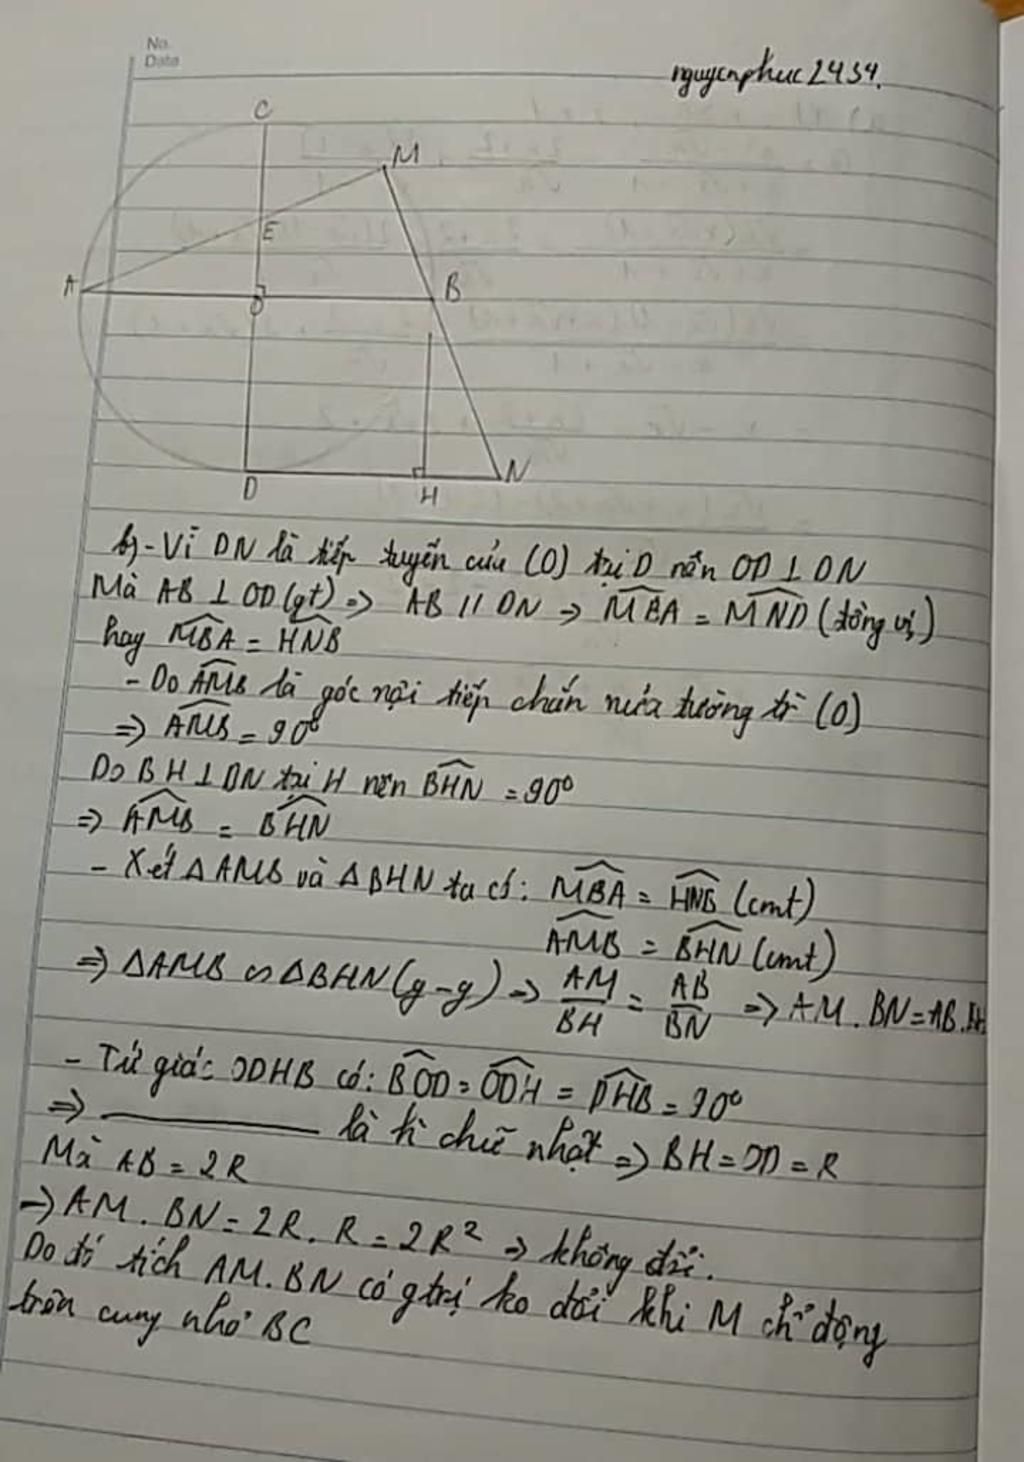 No.
Date
nguyenphuc2434.
C
M
E
A
O
B
D
H
N
b) - Vì DN là tiếp tuyến của (O) tại D nên OD ⊥ DN
Mà AB ⊥ OD (gt) => AB // DN => \widehat{MBA} = \widehat{MND} (đồng vị)
hay \widehat{MBA} = \widehat{HNB}
- Do \widehat{AMB} là góc nội tiếp chắn nửa đường tr (O)
=> \widehat{AMB} = 90°
Do BH ⊥ DN tại H nên \widehat{BHN} = 90°
=> \widehat{AMB} = \widehat{BHN}
- Xét Δ AMB và Δ BHN ta có: \widehat{MBA} = \widehat{HNB} (cmt)
\widehat{AMB} = \widehat{BHN} (cmt)
=> ΔAMB ∽ ΔBHN (g-g) => \frac{AM}{BH} = \frac{AB}{BN} => AM . BN = AB.BH
- Tứ giác ODHB có: \widehat{BOD} = \widehat{ODH} = \widehat{DHB} = 90°
=> ———— là h chữ nhật => BH = OD = R
Mà AB = 2R
=> AM . BN = 2R . R = 2R² => không đổi.
Do đó tích AM.BN có gtrị ko đổi khi M ch động
trên cung nhỏ BC